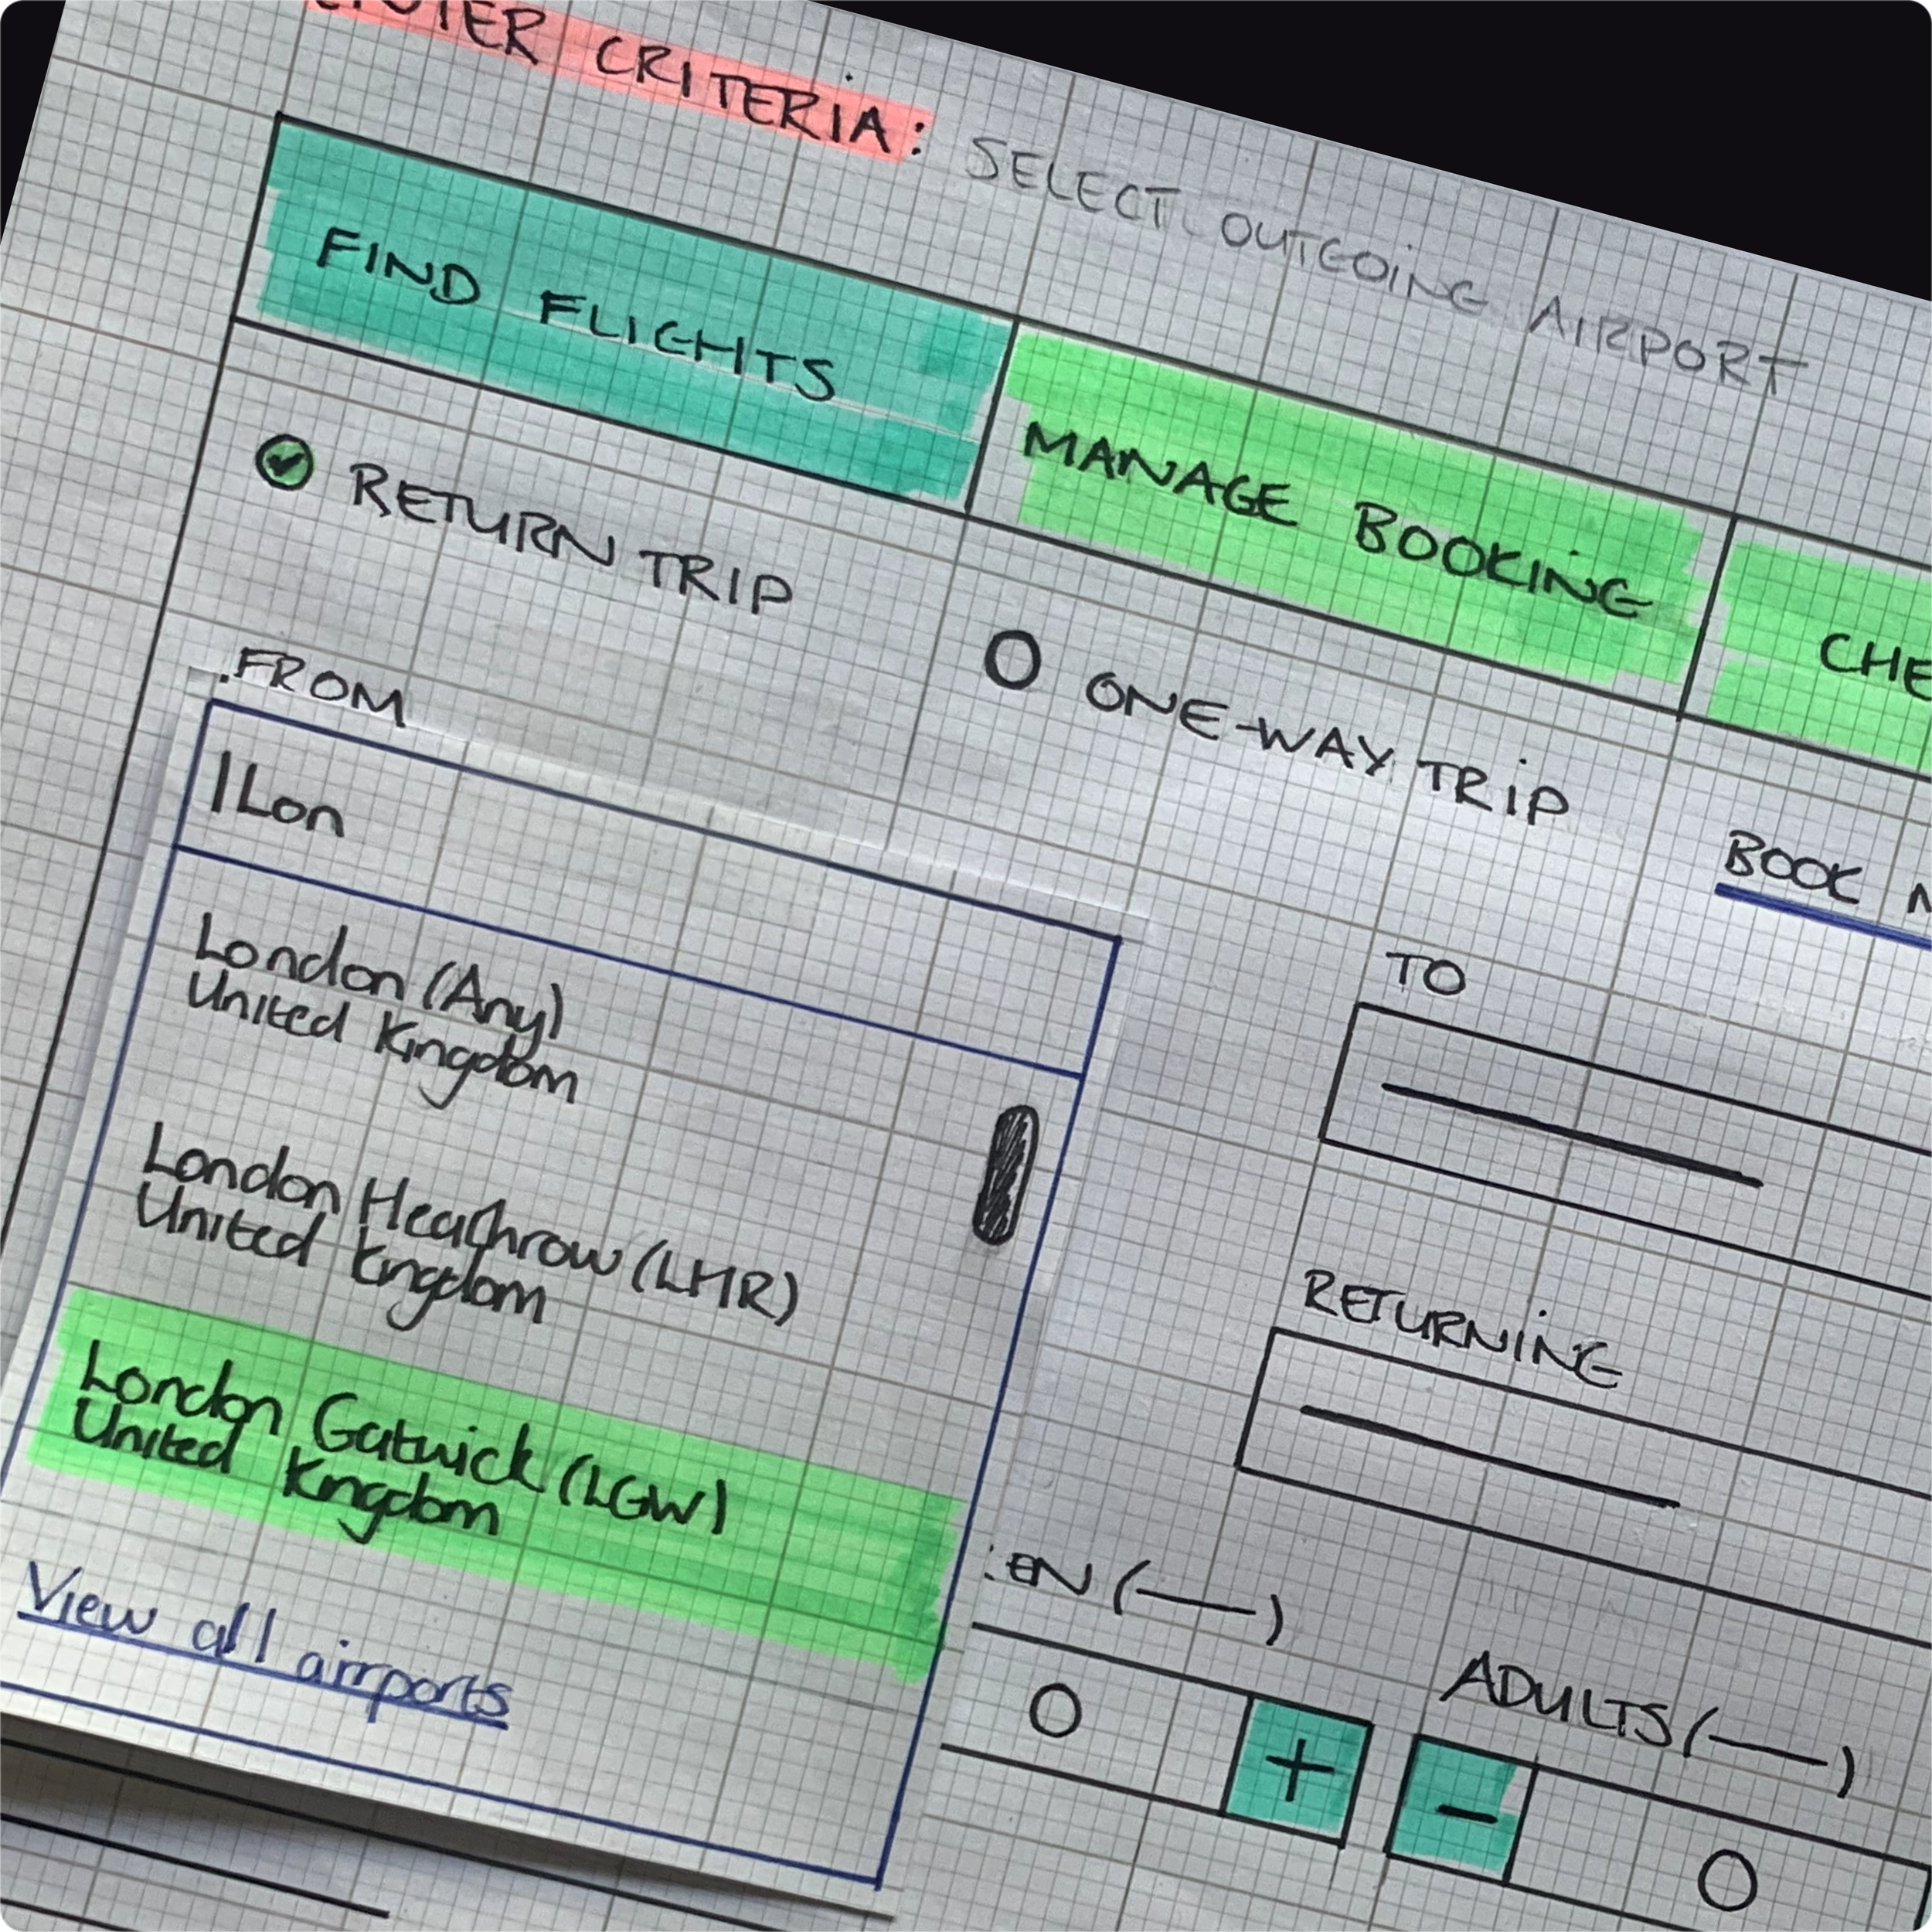 CRITERIA: SELECT OUTGOING AIRPORT
FIND FLIGHTS
MANAGE BOOKING
RETURN TRIP
ONE-WAY TRIP
BOOK
FROM
|Lon
London (Any)
United Kingdom
London Heathrow (LHR)
United Kingdom
London Gatwick (LGW)
United Kingdom
View all airports
TO
RETURNING
ADULTS (—)
O
+
-
O